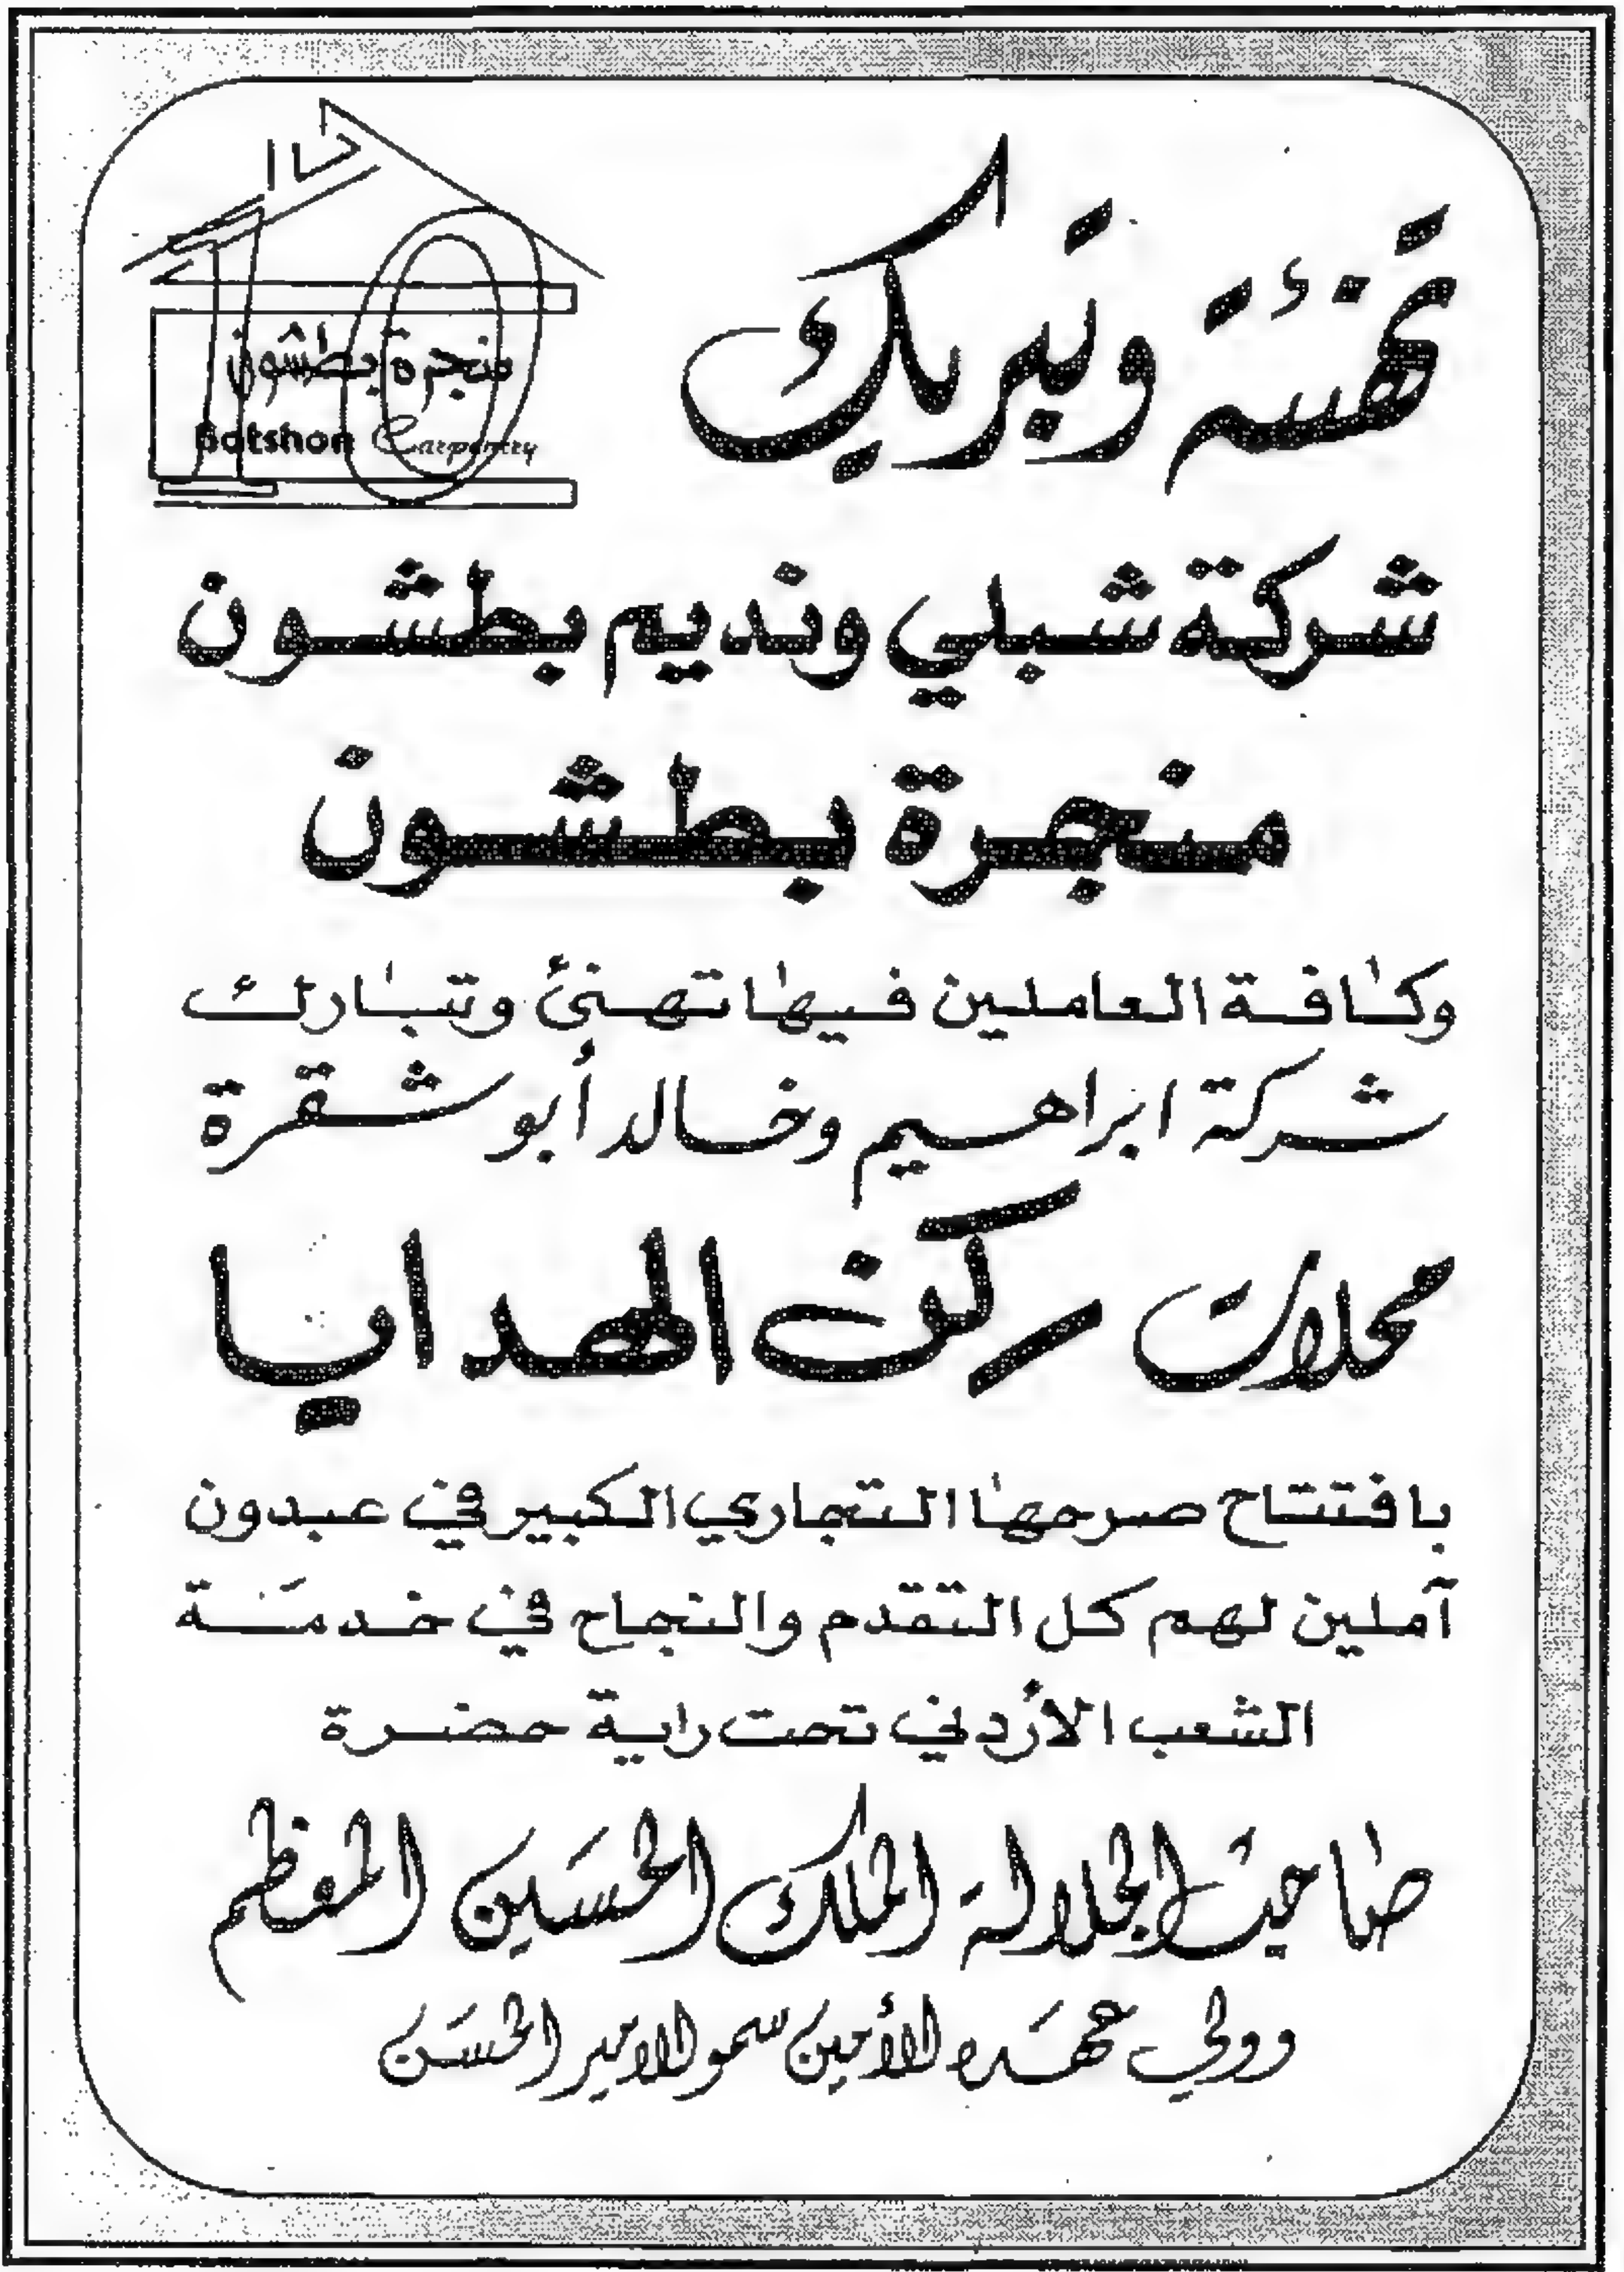 تهنئة وتبريك
10
منجرة بطشون
Batshon Carpentry
شركة شبلي ونديم بطشون
منجرة بطشون
وكافة العاملين فيها تهنئ وتبارك
شركة ابراهيم وخالد أبو شقرة
محلات ركن الهدايا
بافتتاح صرحها التجاري الكبير في عبدون
آملين لهم كل التقدم والنجاح في خدمة
الشعب الأردني تحت راية حضرة
صاحب الجلالة الملك الحسين المعظم
وولي عهده الأمين سمو الامير الحسن